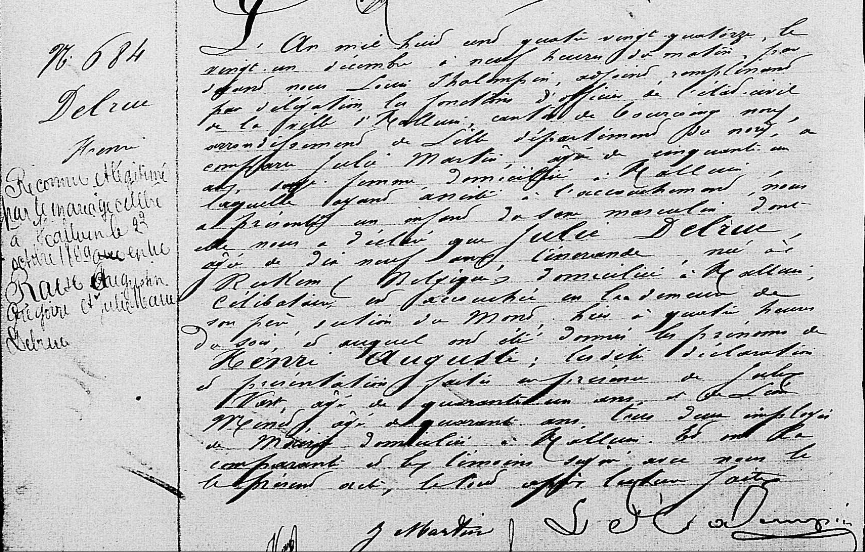 N. 684
Delrue
Henri
Reconnu et légitimé
par le mariage célébré
à Halluin le 23
octobre 1897 entre
Augustin
Grégoire et Julie Marie
Delrue
L'An mil huit cent quatre vingt quatorze, le
vingt un décembre à neuf heures du matin, par
devant nous Louis Thalampin, adjoint remplissant
par délégation les fonctions d'officier de l'état-civil
de la Ville d'Halluin, canton de Tourcoing nord,
arrondissement de Lille département du nord, a
comparu Julie Martin, âgée de cinquante un
ans, sage femme domiciliée à Halluin,
laquelle ayant assisté à l'accouchement, nous
a présenté un enfant du sexe masculin dont
elle nous a déclaré que Julie Delrue,
âgée de dix neuf ans, née à
Rekkem (Belgique) domiciliée à Halluin,
célibataire est accouchée en la demeure de
son père section du Mont, hier à quatre heures
du soir, et auquel ont été donnés les prénoms de
Henri Auguste; lesdites déclaration
et présentation faites en présence de Jules
âgé de quarante un ans, et de Léon
âgé de quarante ans, tous deux employés
de Mairie domiciliés à Halluin. Et ont la
comparante et les témoins signé avec nous le
le présent acte, le tout après lecture faite
J Martin